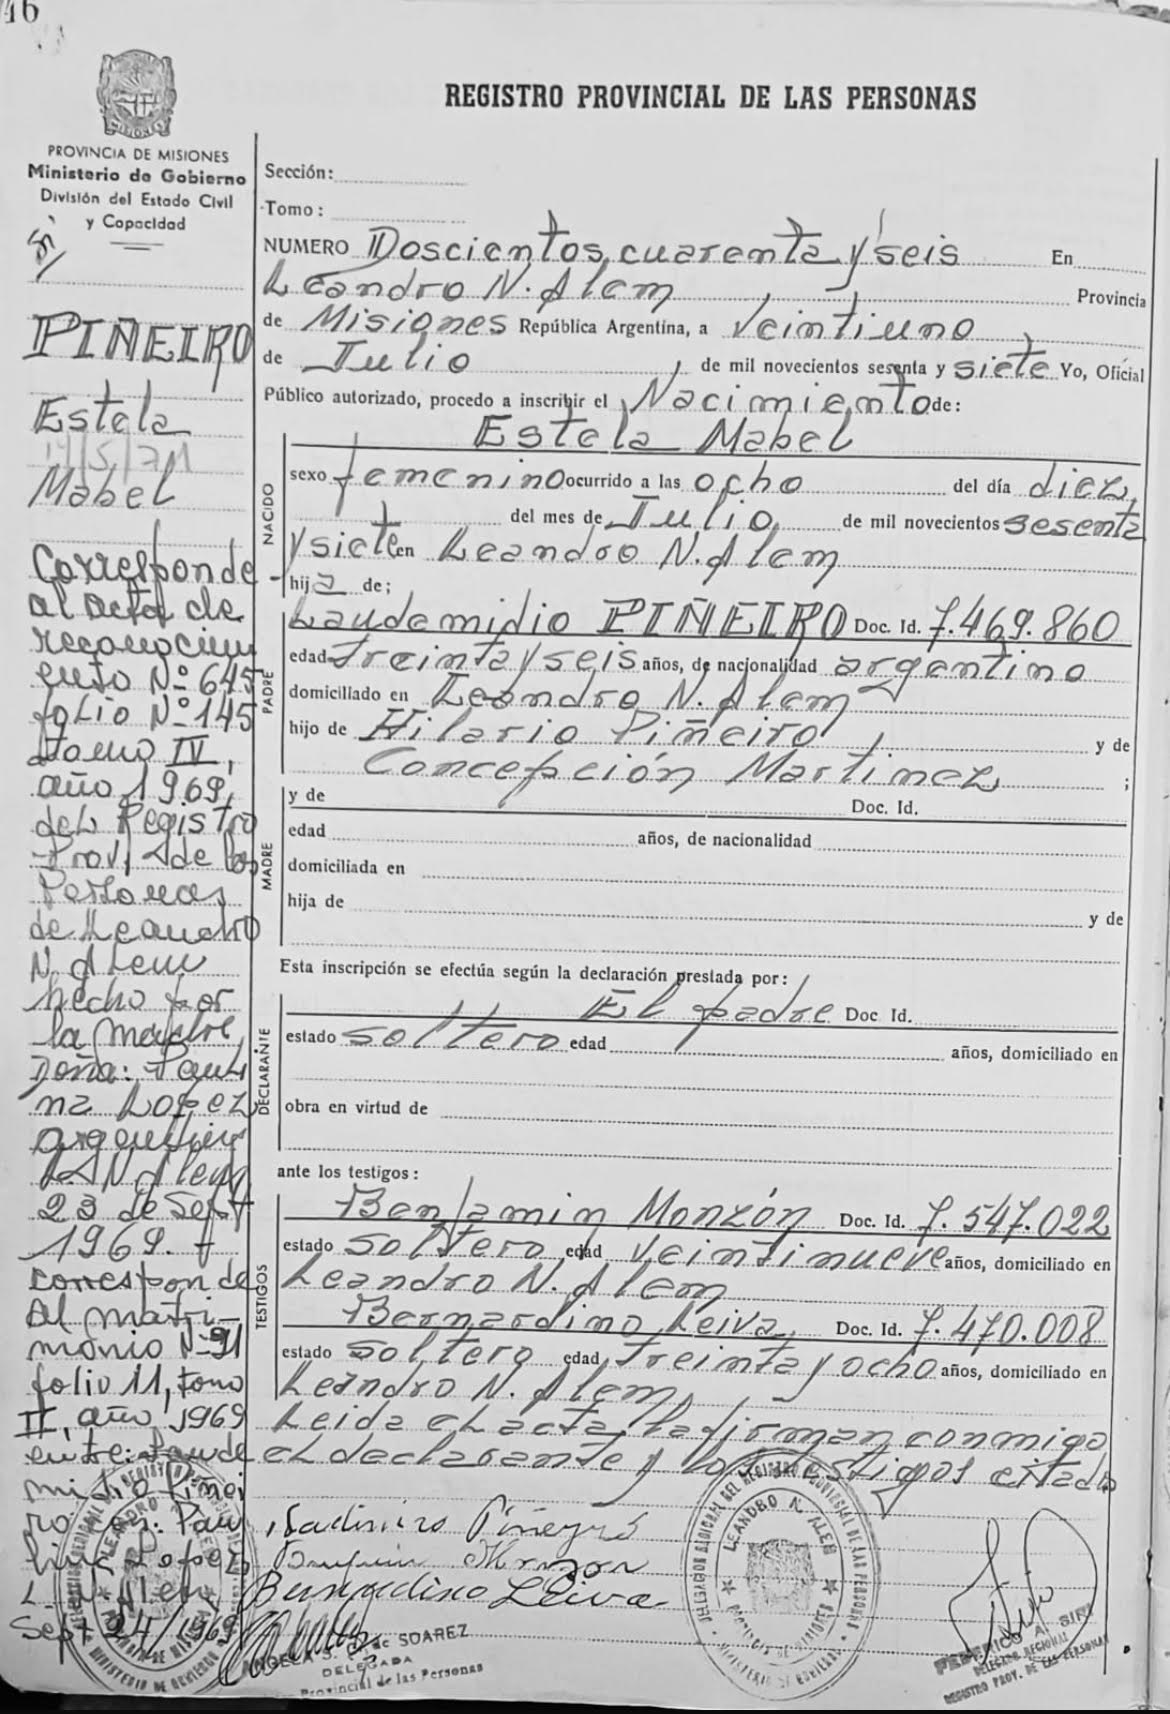 46
REGISTRO PROVINCIAL DE LAS PERSONAS
MISIONES
PROVINCIA DE MISIONES
Ministerio de Gobierno
División del Estado Civil
y Capacidad
PIÑEIRO
Estela
14/5/71
Mabel
Corresponde
al acta de
reconocimi
ento Nº 645
folio Nº 145
tomo IV,
año 1969,
del Registro
Prov. de las
Personas
de Leandro
N. Alem
hecho por
la madre,
Doña: Pauli
na Lopez
argentina
L. N. Alem
23 de Sept
1969.
Corresponde
al matri-
monio Nº 91
folio 11, tomo
II, año 1969
entre: Laude
midio Piñei
ro con: Pau
lina Lopez
L. N. Alem
Sept 24/1969
Sección:
Tomo:
NUMERO Doscientos cuarenta y seis En
Leandro N. Alem Provincia
de Misiones República Argentina, a veintiuno
de Julio de mil novecientos sesenta y siete Yo, Oficial
Público autorizado, procedo a inscribir el Nacimiento de:
NACIDO
Estela Mabel
sexo femenino ocurrido a las ocho del día diez
del mes de Julio de mil novecientos sesenta
y siete en Leandro N. Alem
hija de;
PADRE
Laudemidio PIÑEIRO Doc. Id. 7.469.860
edad treinta y seis años, de nacionalidad argentino
domiciliado en Leandro N. Alem
hijo de Hilario Piñeiro y de
Concepción Martinez ;
MADRE
y de Doc. Id.
edad años, de nacionalidad
domiciliada en
hija de y de
Esta inscripción se efectúa según la declaración prestada por:
DECLARANTE
El padre Doc Id.
estado soltero edad años, domiciliado en
obra en virtud de
ante los testigos:
TESTIGOS
Benjamin Monzón Doc. Id. 7.547.022
estado soltero edad veintinueve años, domiciliado en
Leandro N. Alem
Bernardino Leiva Doc. Id. 7.470.008
estado soltero edad treinta y ocho años, domiciliado en
Leandro N. Alem
Leida el acta la firman conmigo
el declarante y los testigos citados
Piñeyró
Monzon
Leiva
de SOAREZ
DELEGADA
Provincial de las Personas
LEANDRO N. ALEM
PROVINCIA DE MISIONES
MINISTERIO DE GOBIERNO
FEDERICO A.
DELEGADO REGIONAL
REGISTRO PROV. DE LAS PERSONAS